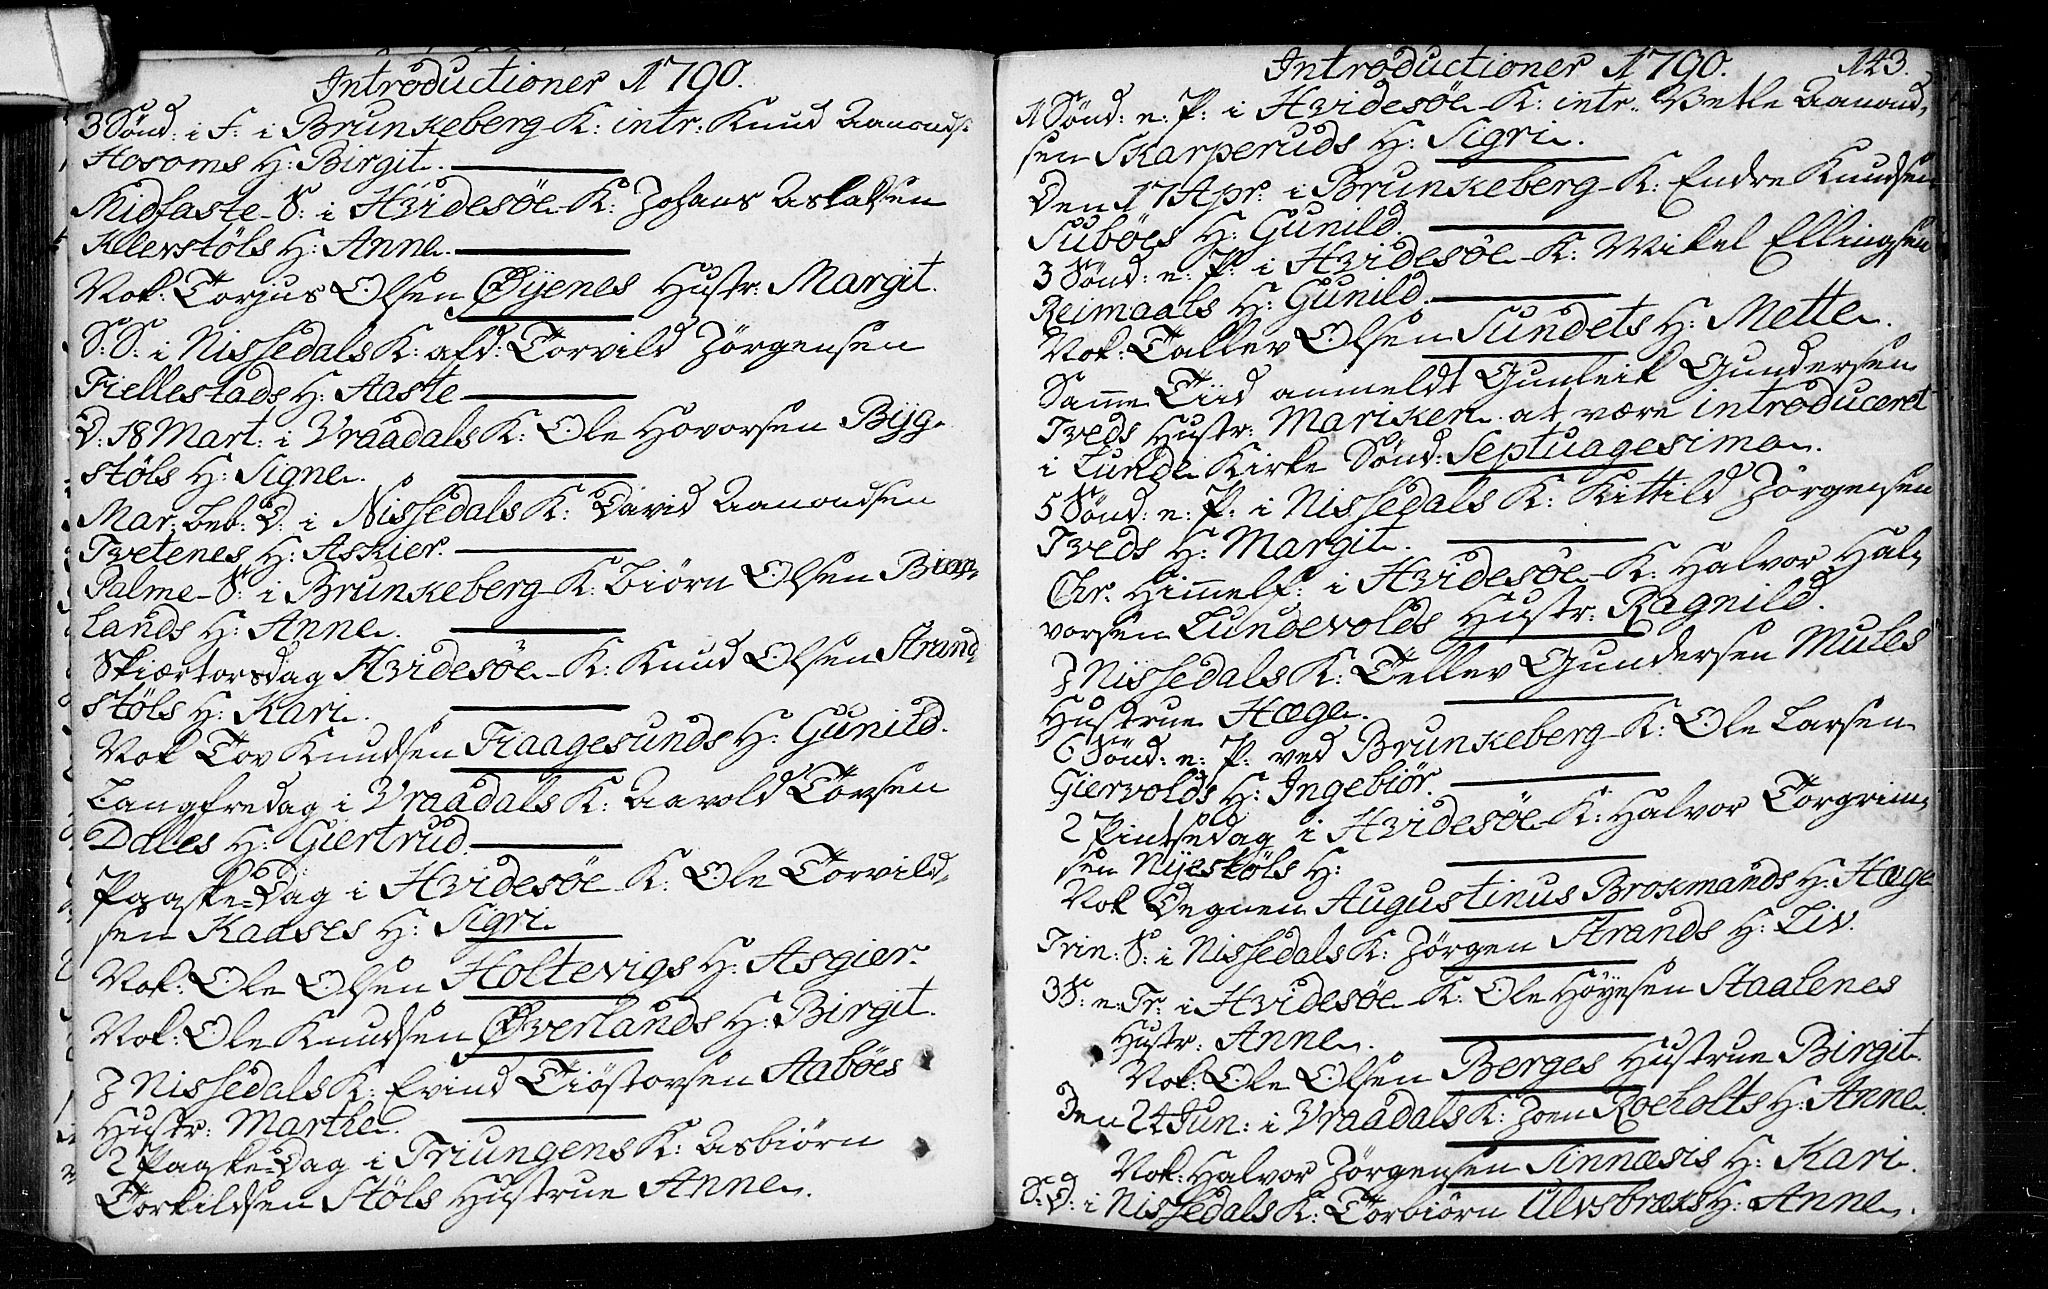 Introductioner 1790.
3 Sönd: i F: i Brunkeberg K: intr: Knud Aanonds:
Hosoms H: Birgit.
Midfaste-S: i Hvidesöe K: Johans Aslaksen
Kleevstöls H: Anne.
Nok: Torjus Olsen Øÿenes Hustr: Margit.
S: S: i Nissedals K: afd: Torvild Jörgensen
Fiellestads H: Aaste
D: 18 Mart: i Vraadals K: Ole Hovorsen Bÿg-
stöls H: Signe.
Mar: Beb: D: i Nissedals K: David Aanondsen
Tvetenes H: Askier.
Palme-S: i Brunkeberg K: Biörn Olsen
Lands H: Anne.
Skiærtorsdag Hvidesöe K: Knud Olsen Strand-
stöls H: Kari.
Nok Tov Knudsen Fraagesunds H: Gunild.
Langfredag i Vraadals K: Aavold Tovsen
Dales H: Giertrud.
Paaske-Dag i Hvidesöe K: Ole Torvild-
sen Kaases H: Sigri
Nok: Ole Olsen Holtevigs H: Asgier.
Nok: Ole Knudsen Øverlands H: Birgit.
J Nissedals K: Evind Tiöstovsen Aaböes
Hustr: Marthe.
2 Paaske-Dag i Triungens K: Asbiörn
Torkildsen Stöls Hustrue Anne.
Introductioner 1790. 143.
1 Sönd: e: P: i Hvidesöe K: intr: Vetle Aanond-
sen Skarperuds H: Sigri.
Den 17 Apr: i Brunkeberg K: Endre Knudsen
Suböes H: Gunild.
3 Sönd: e: P: i Hvidesöe K: Mikel Ellingsen
Reimaals H: Gunild.
Nok: Tallev Olsen Sundets H: Mette.
Samme Tiid anmeldt Gunleik Gundersen
Tveds Hustr: Mariken at være introduceret
i Lunde Kirke Sönd: Septuagesima.
5 Sönd: e: P: i Nissedals K: Kittild Jörgensen
Tveds H: Margit.
Chr. Himmelf: i Hvidesöe K: Halvor Hal-
vorsen Lundevolds Hustr: Ragnild.
J Nissedals K: Tellev Gundersen Mules
Hustrue Hæge.
6 Sönd: e: P: ved Brunkeberg K: Ole Larsen
Giervolds H: Ingebiör.
2 Pintsedag i Hvidesöe K: Halvor Torgrim-
sen Nÿestöls H:
Nok Degnen Augustinus Brokmands H: Hæge
Trin: S: i Nissedals K: Jörgen Strands H: Liv.
3 S: e: Tr: i Hvidesöe K: Ole Höÿesen Staalenes
Hustr: Anne.
Nok: Ole Olsen Berges Hustrue Birgit.
Den 24 Jun: i Vraadals K: Joen Roeholts H: Anne.
Nok: Halvor Jörgensen Sinnæsis H: Kari.
S: D: i Nissedals K: Torbiörn Ulvsbræks H: Anne.